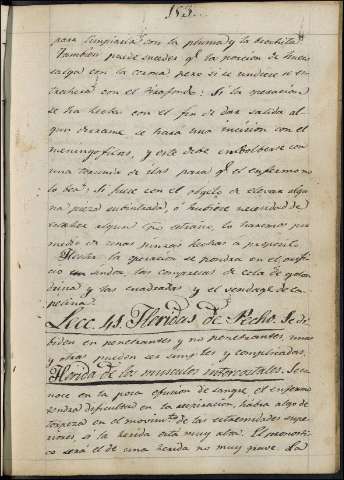 153.
para limpiarla con la pluma y la brochita
Tambien puede suceder q.e la porcion de hueso
salga con la corona pero si se undiere se es-
traherá con el tirafondo: Si la operacion
se ha hecho con el fin de dar salida al-
gun derrame se hará una incision con el
meningofilax, y este debe embolberse con
una torunda de ilas para q.e el enfermo no
lo vea: Si fuese con el objeto de elevar algu-
na pieza subintrada, ó hubiere necesidad de
estraher algun cpo estraño, lo haremos por
medio de unas pinzas hechas a proposito
Hecha la operacion se pondra en el orifi-
cio un sindon, las compresas de cola de golon-
drina y las cuadradas y el vendage de ca-
pelina.
Lecc. 41. Heridas de Pecho. Se di-
biden en penetrantes y no penetrantes, unas
y otras pueden ser simples y complicadas.
Herida de los musculos intercostales. Se co-
noce en la poca efusion de sangre, el enfermo
tendra dificultad en la respiracion, habra algo de
torpeza en el movim.to de las estremidades supe-
riores, si la herida está muy alta: El pronosti-
co será el de una herida no muy grave. La